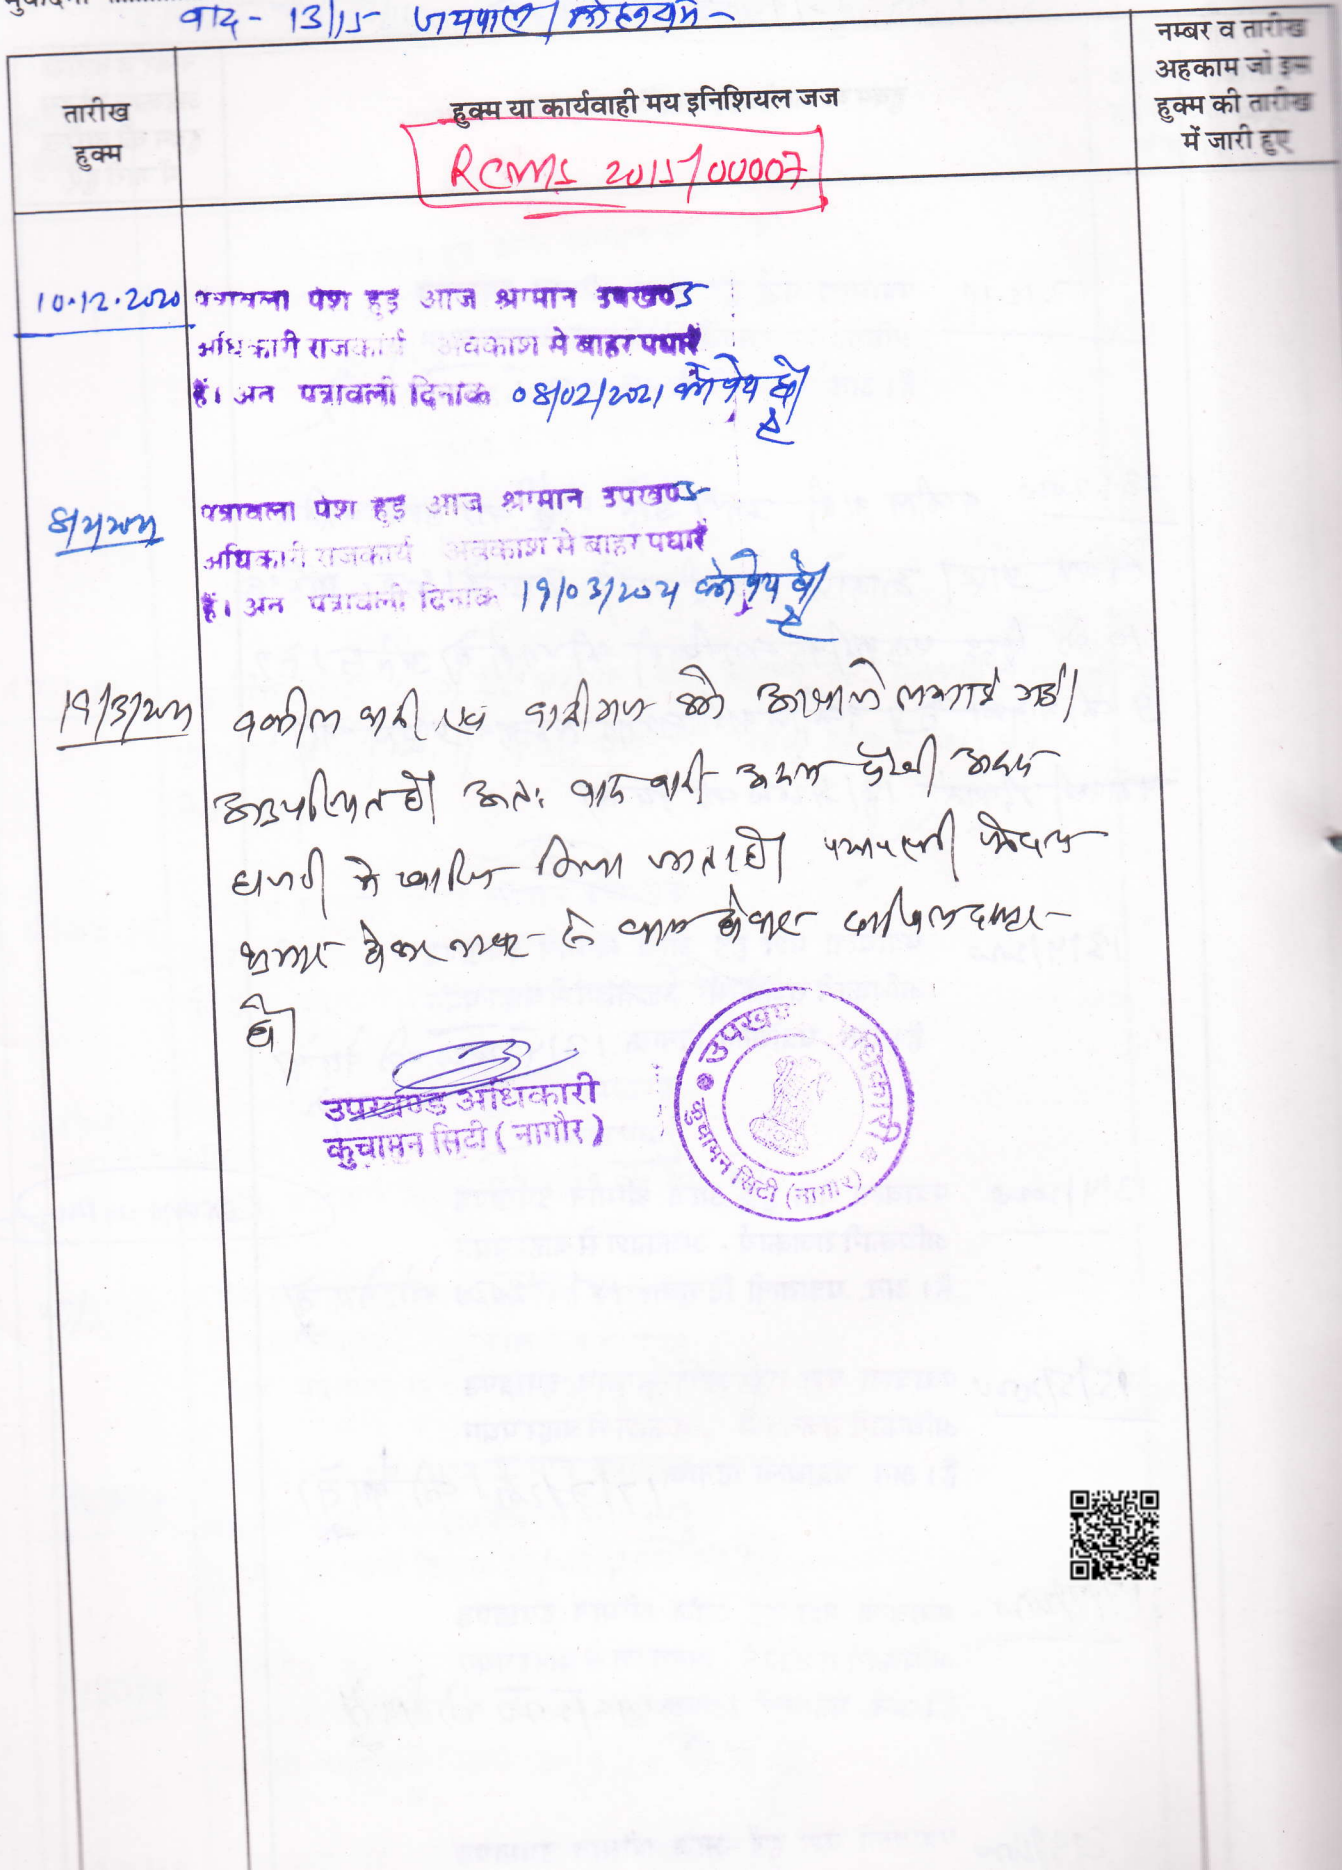 वाद - 13/15 जयपाल /
तारीख
हुक्म
हुक्म या कार्यवाही मय इनिशियल जज
नम्बर व तारीख
अहकाम जो इस
हुक्म की तारीख
में जारी हुए
RCMS 2015/00007
10.12.2020 पत्रावली पेश हुई आज श्रीमान उपखण्ड
अधिकारी राजकार्य अवकाश मे बाहर पधारे
हैं। अत पत्रावली दिनांक 08/02/2021 को पेश हो
पत्रावली पेश हुई आज श्रीमान उपखण्ड
अधिकारी राजकार्य अवकाश मे बाहर पधारे
हैं। अत पत्रावली दिनांक 19/03/2021 को पेश हो
19/3/2021 वकील वादी एवं वादीगण को आवाजे लगाई गई।
अनुपस्थित है। अतः वाद वादी अदम पैरवी अदम
हाजरी मे खारिज किया जाता है। पत्रावली फैसल
शुमार होकर नम्बर से कम होकर दाखिल दफ्तर
हो।
उपखण्ड अधिकारी
कुचामन सिटी (नागौर)
उपखण्ड अधिकारी
कुचामन सिटी (नागौर)